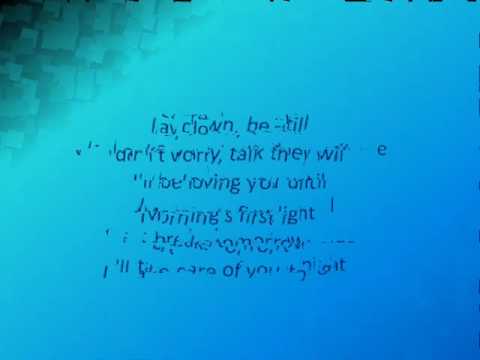 Lay down, be still
don't worry, talk they will
I'll be loving you until
Morning's first light
tomorrow
I'll take care of you tonight